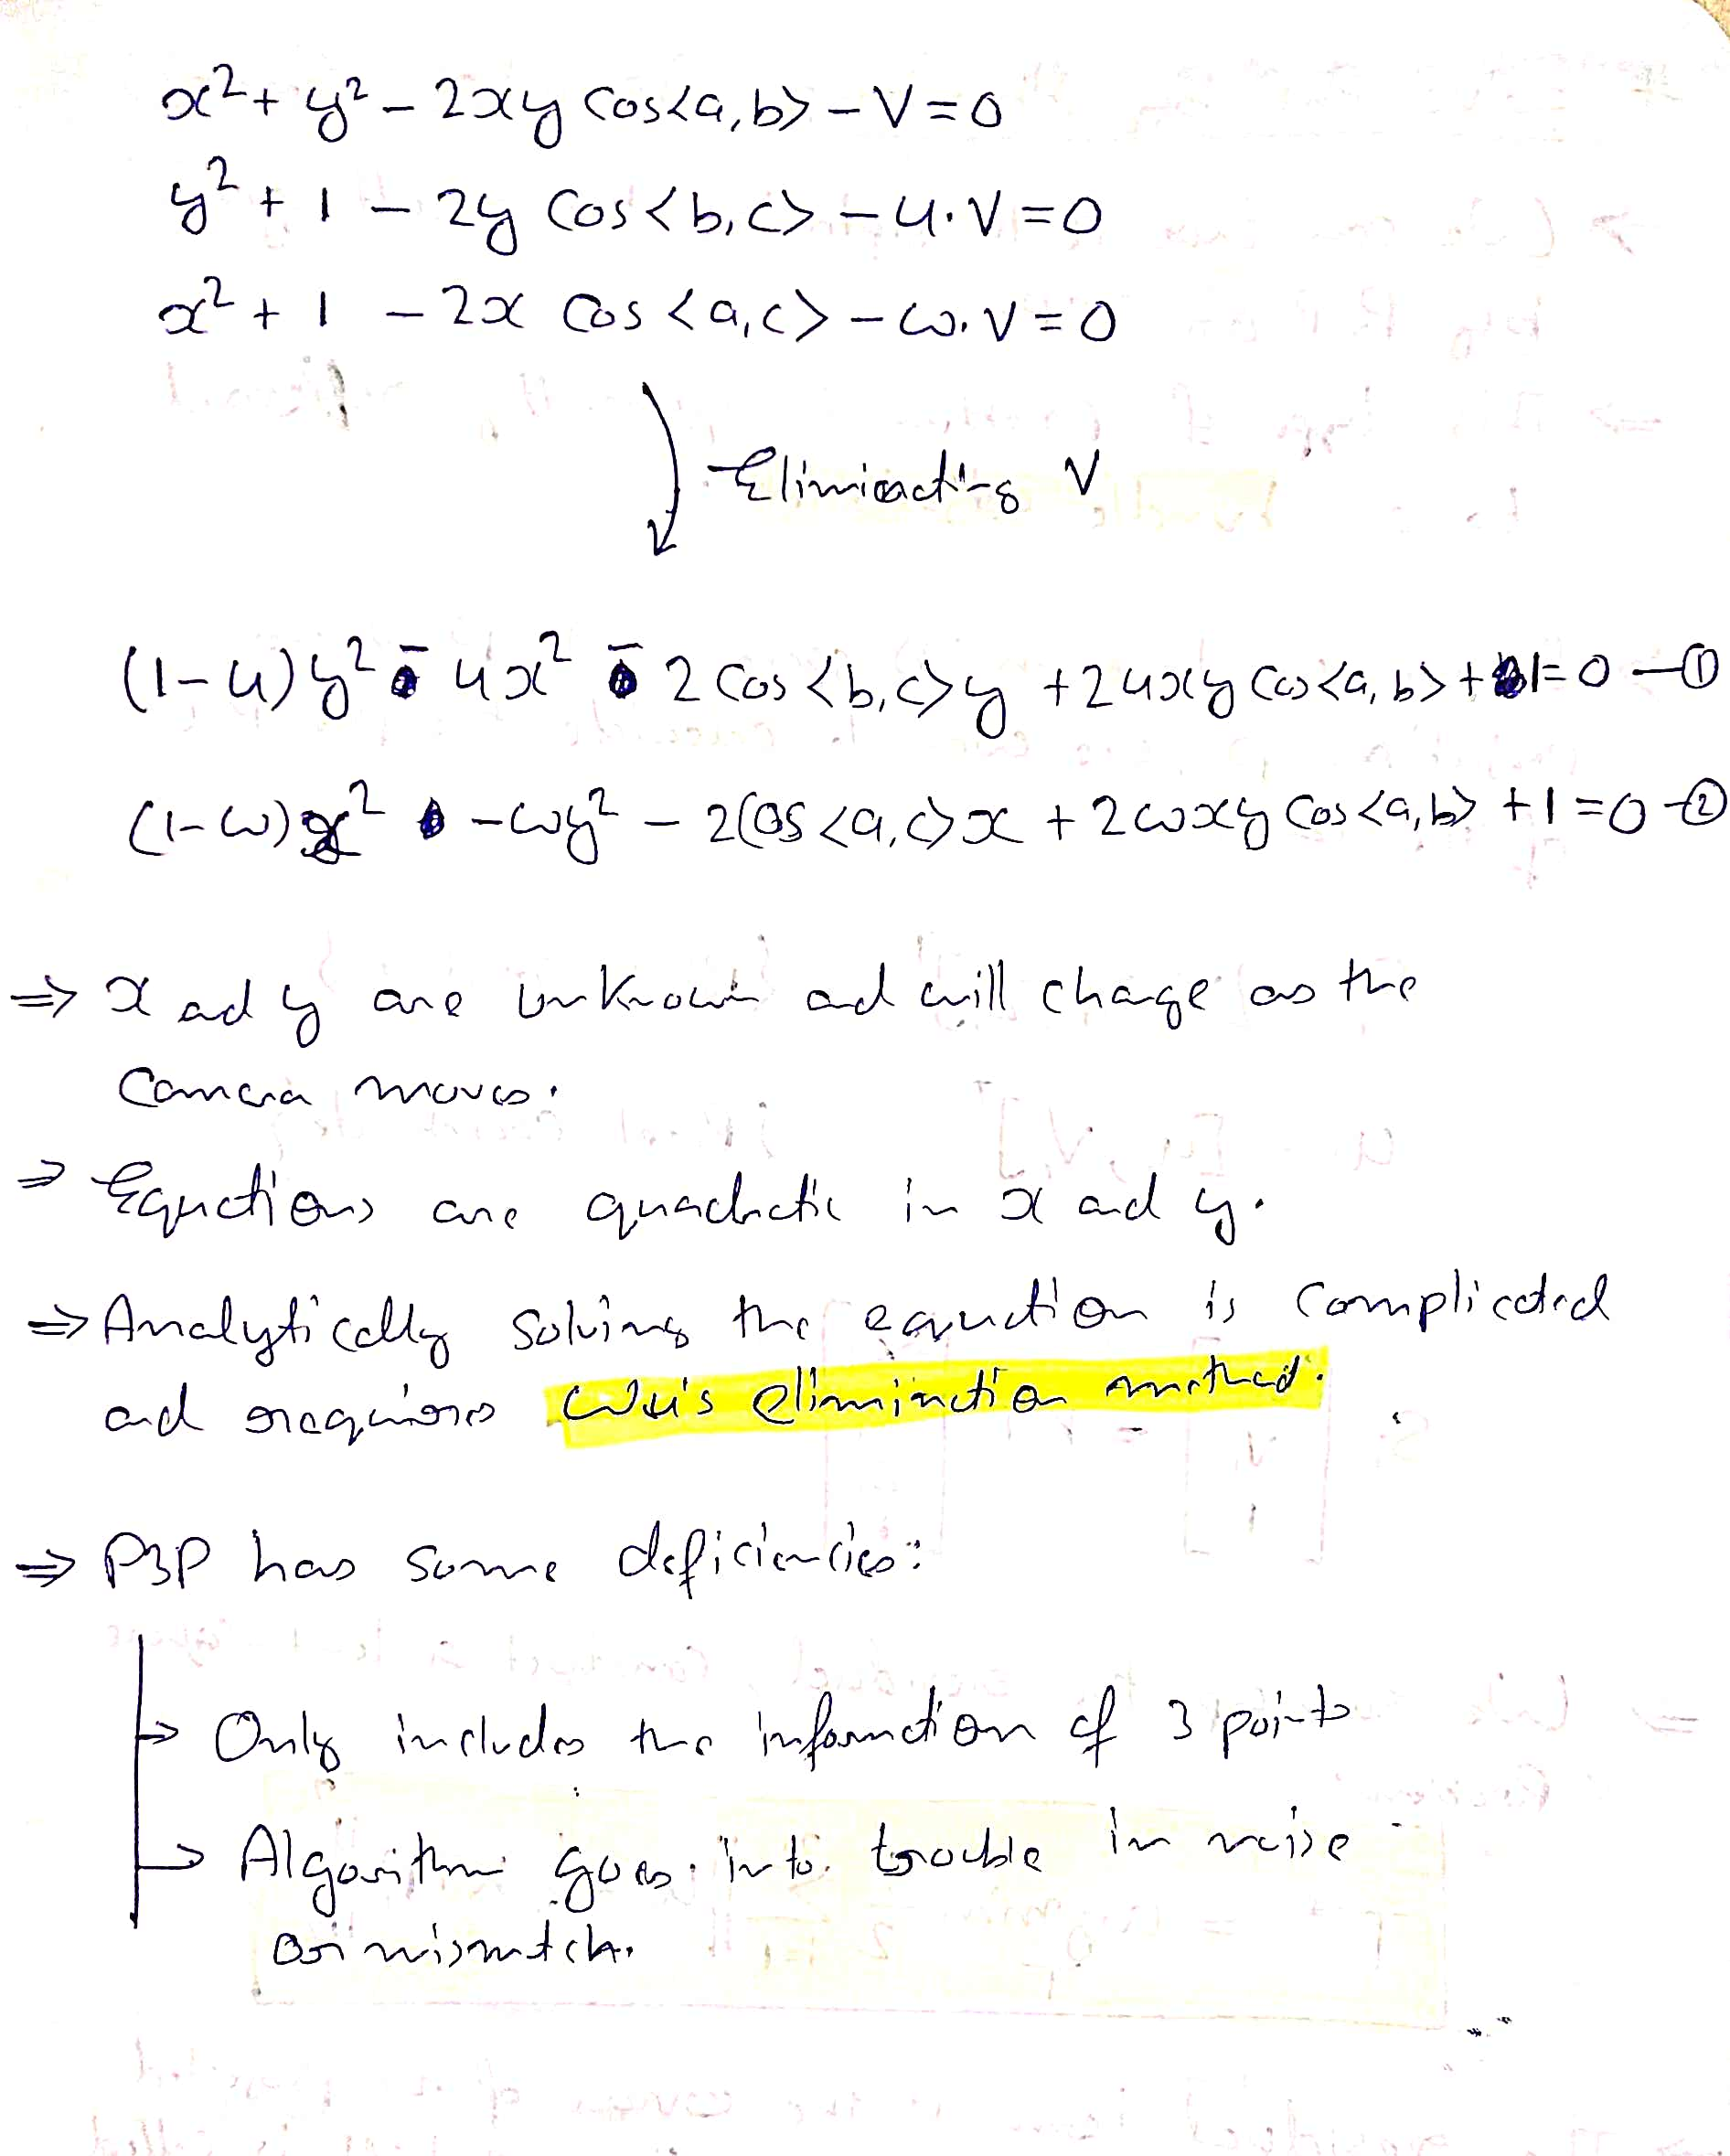 x² + y² - 2xy cos<a,b> - V = 0
y² + 1 - 2y cos<b,c> - u.V = 0
x² + 1 - 2x cos<a,c> - w.V = 0
Eliminating V
(1-u)y² - ux² - 2cos<b,c>y + 2uxy cos<a,b> + 1 = 0 — ①
(1-w)x² - wy² - 2cos<a,c>x + 2wxy cos<a,b> + 1 = 0 — ②
⇒ x and y are unknown and will change as the
camera moves.
⇒ Equations are quadratic in x and y.
⇒ Analytically solving the equation is complicated
and requires Wu's elimination method.
⇒ P3P has some deficiencies:
→ Only includes the information of 3 points
→ Algorithm goes into trouble in noise
or mismatch.